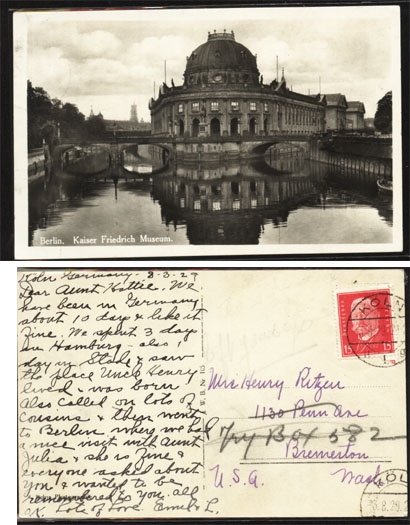 Berlin. Kaiser Friedrich Museum.
Köln Germany - 8-3-29
Dear Aunt Hattie. We
have been in Germany
about 10 days & like it
fine. We spent 3 days
in Hamburg - also 1
day in Stade & saw
the place Uncle Henry
lived & was born
Also called on lots of
cousins & then went
to Berlin where we had
a nice visit with Aunt
Julia & she is fine &
everyone asked about
you & wanted to be
remembered to you. all
O.K. Lots of Love. Emil & L.
KÖLN
15
Mrs Henry Ritzer
1130 Penn Ave
Try Box 582
Bremerton
U.S.A. Wash
KÖLN